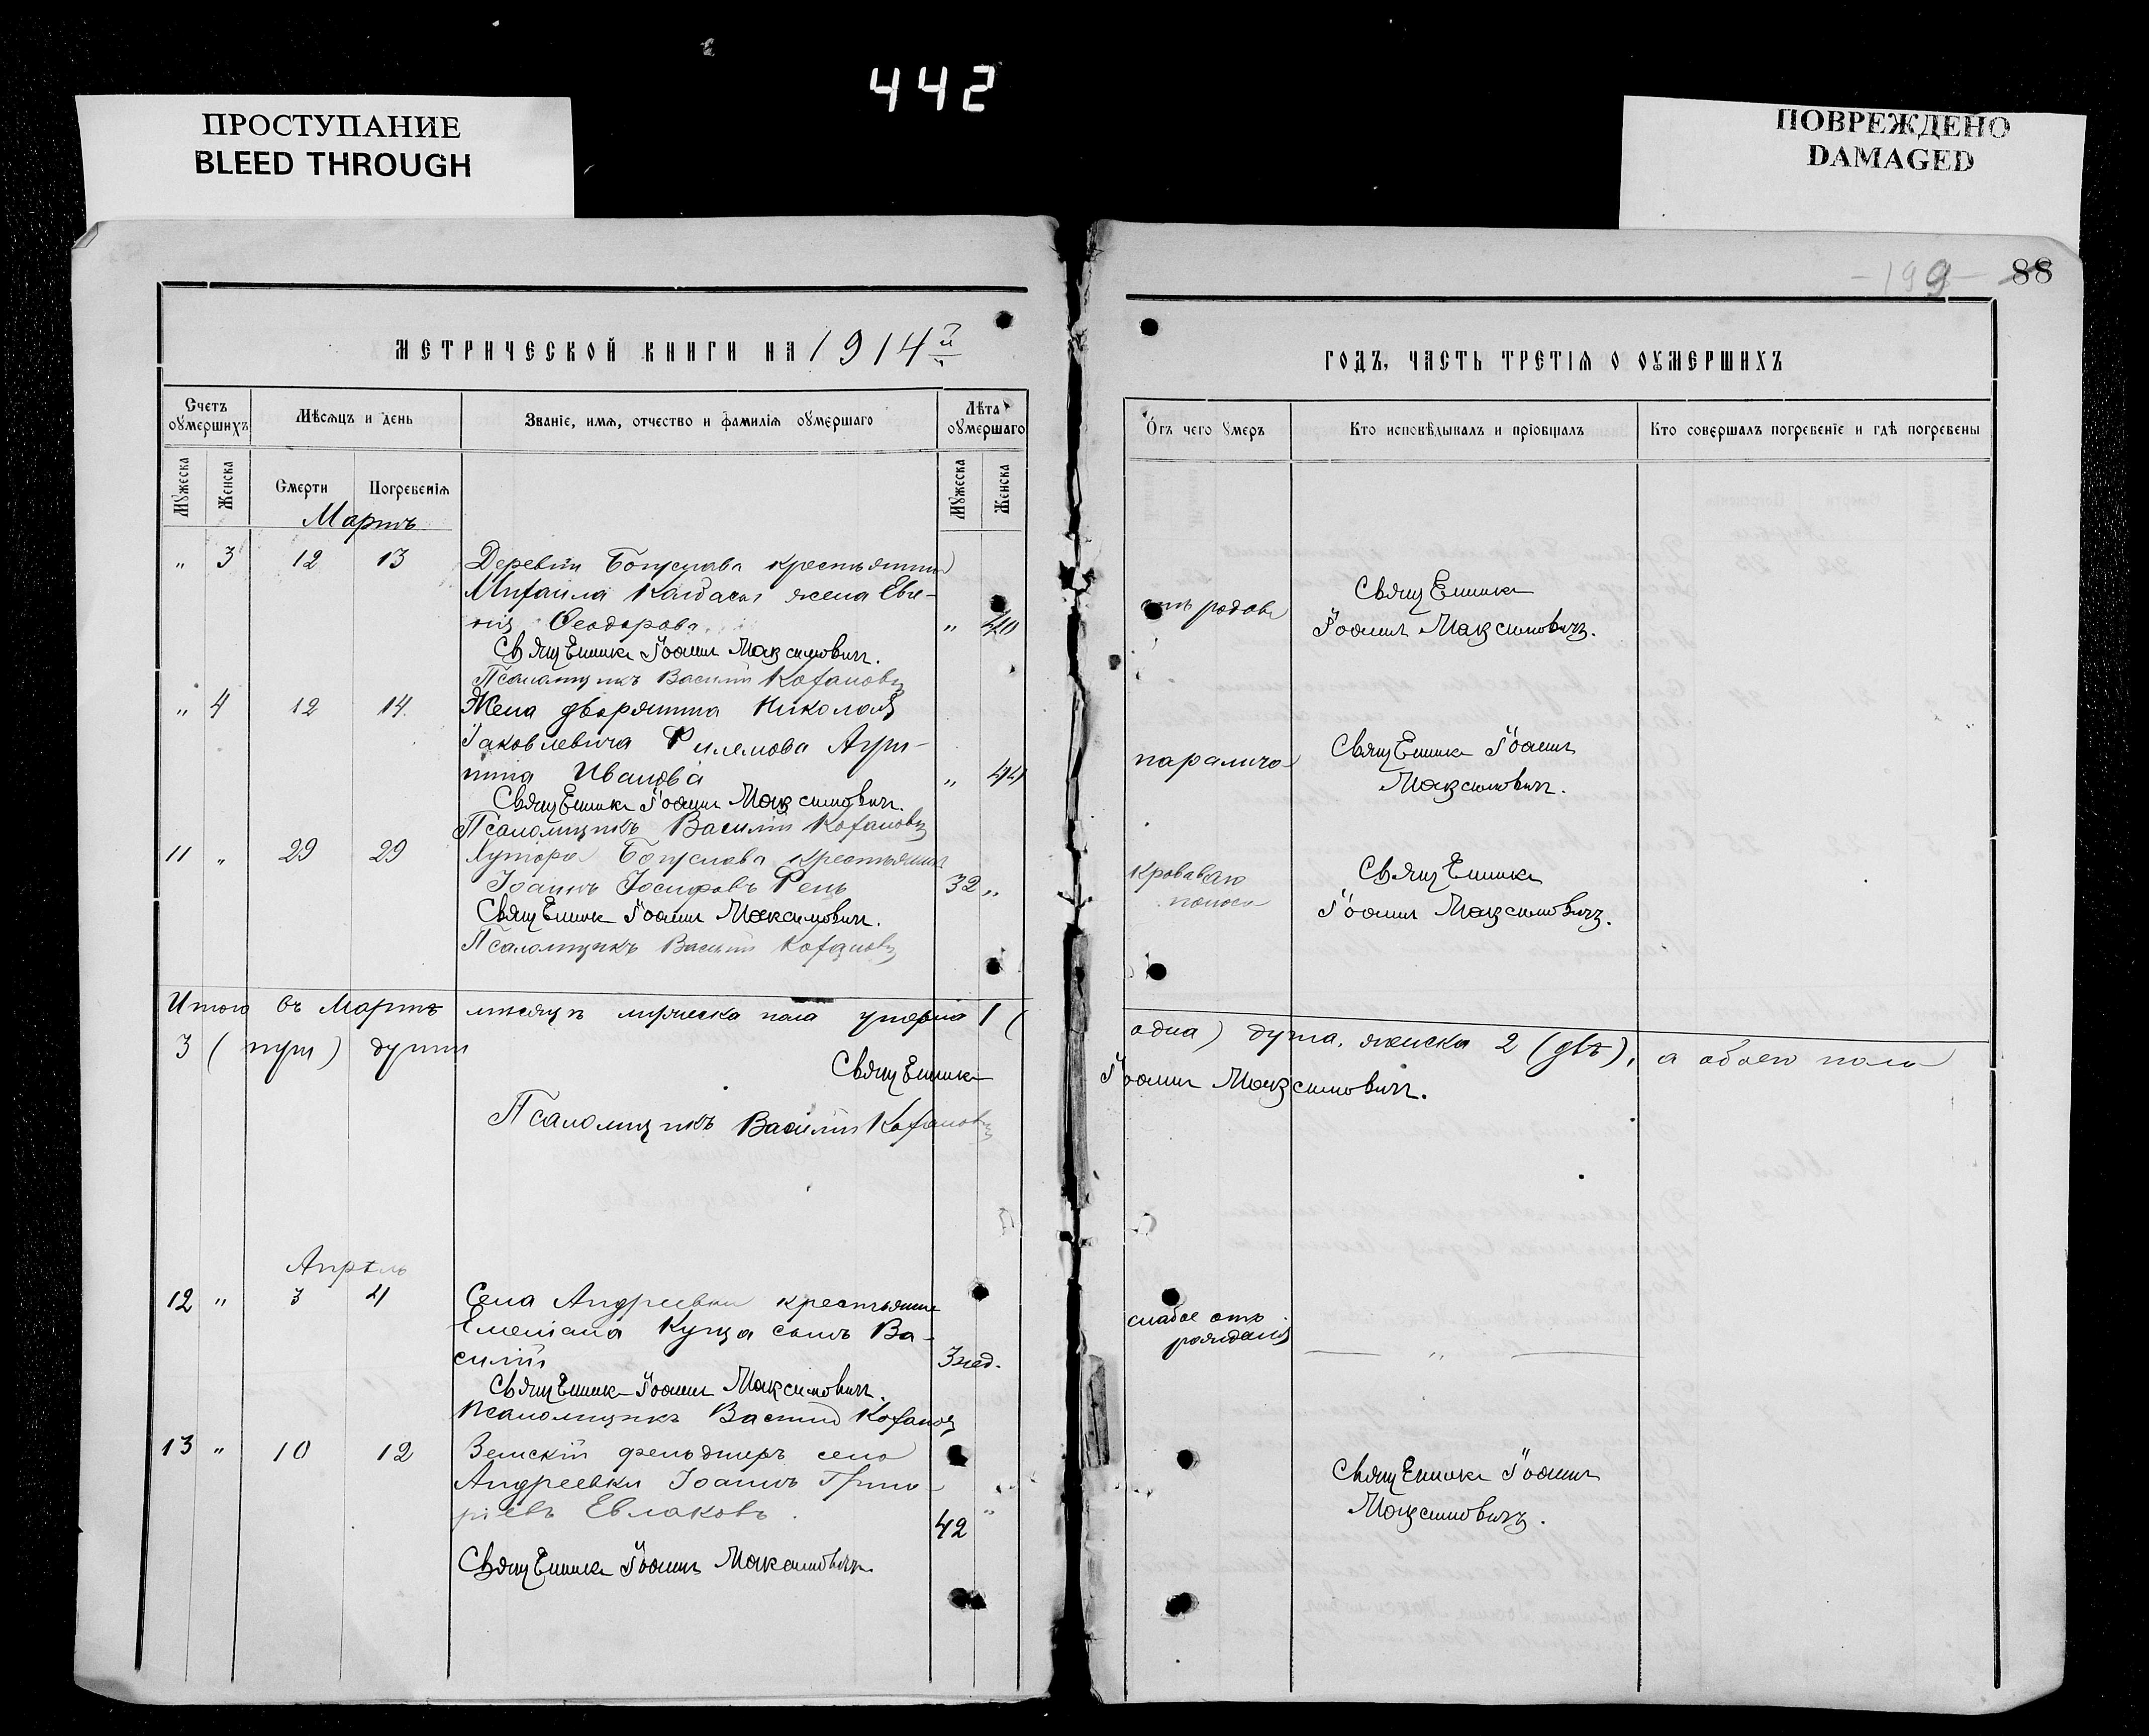 442
ПРОСТУПАНИЕ
BLEED THROUGH
ПОВРЕЖДЕНО
DAMAGED
199 88
МЕТРИЧЕСКОЙ КНИГИ НА 1914й
Счетъ оумершихъ
Мѣсяцъ и день
Званіе, имя, отчество и фамилія оумершаго
Лѣта оумершаго
Мужеска
Женска
Смерти
Погребенія
Мужеска
Женска
Мартъ
" 3 12 13 Деревни Богуслава крестьянина
Михаила жена Евге-
нія Ѳеодорова " 40
Священникъ Іоаннъ Максимовичъ.
Псаломщикъ Василій
" 4 12 14 Жена дворянина Николая
Іаковлевича Филемова Агри-
пина Иванова " 44
Священникъ Іоаннъ Максимовичъ.
Псаломщикъ Василій
11 " 29 29 Хутора Богуслава крестьянинъ
Іоаннъ Іосифовъ 32 "
Священникъ Іоаннъ Максимовичъ.
Псаломщикъ Василій
Итого въ Мартѣ мѣсяцѣ мужеска пола умерло 1 (
3 (три) души
Священникъ
Псаломщикъ Василій
Апрѣль
12 " 3 4 Села Андреевки крестьянина
Емеліана Куща сынъ Ва-
силій 3 нед.
Священникъ Іоаннъ Максимовичъ.
Псаломщикъ Василій
13 " 10 12 Земскій фельдшеръ села
Андреевки Іоаннъ Григо-
ріевъ Евлаковъ 42 "
Священникъ Іоаннъ Максимовичъ.
ГОДЪ, ЧАСТЬ ТРЕТІЯ О ОУМЕРШИХЪ
Отъ чего умеръ
Кто исповѣдывалъ и пріобщалъ
Кто совершалъ погребеніе и гдѣ погребены
отъ родовъ
Священникъ
Іоаннъ Максимовичъ.
паралича
Священникъ Іоаннъ
Максимовичъ.
кроваваго
поноса
Священникъ
Іоаннъ Максимовичъ.
одна) душа, женска 2 (двѣ), а обоего пола
Іоаннъ Максимовичъ.
слабое отъ
рожденія
"
Священникъ Іоаннъ
Максимовичъ.